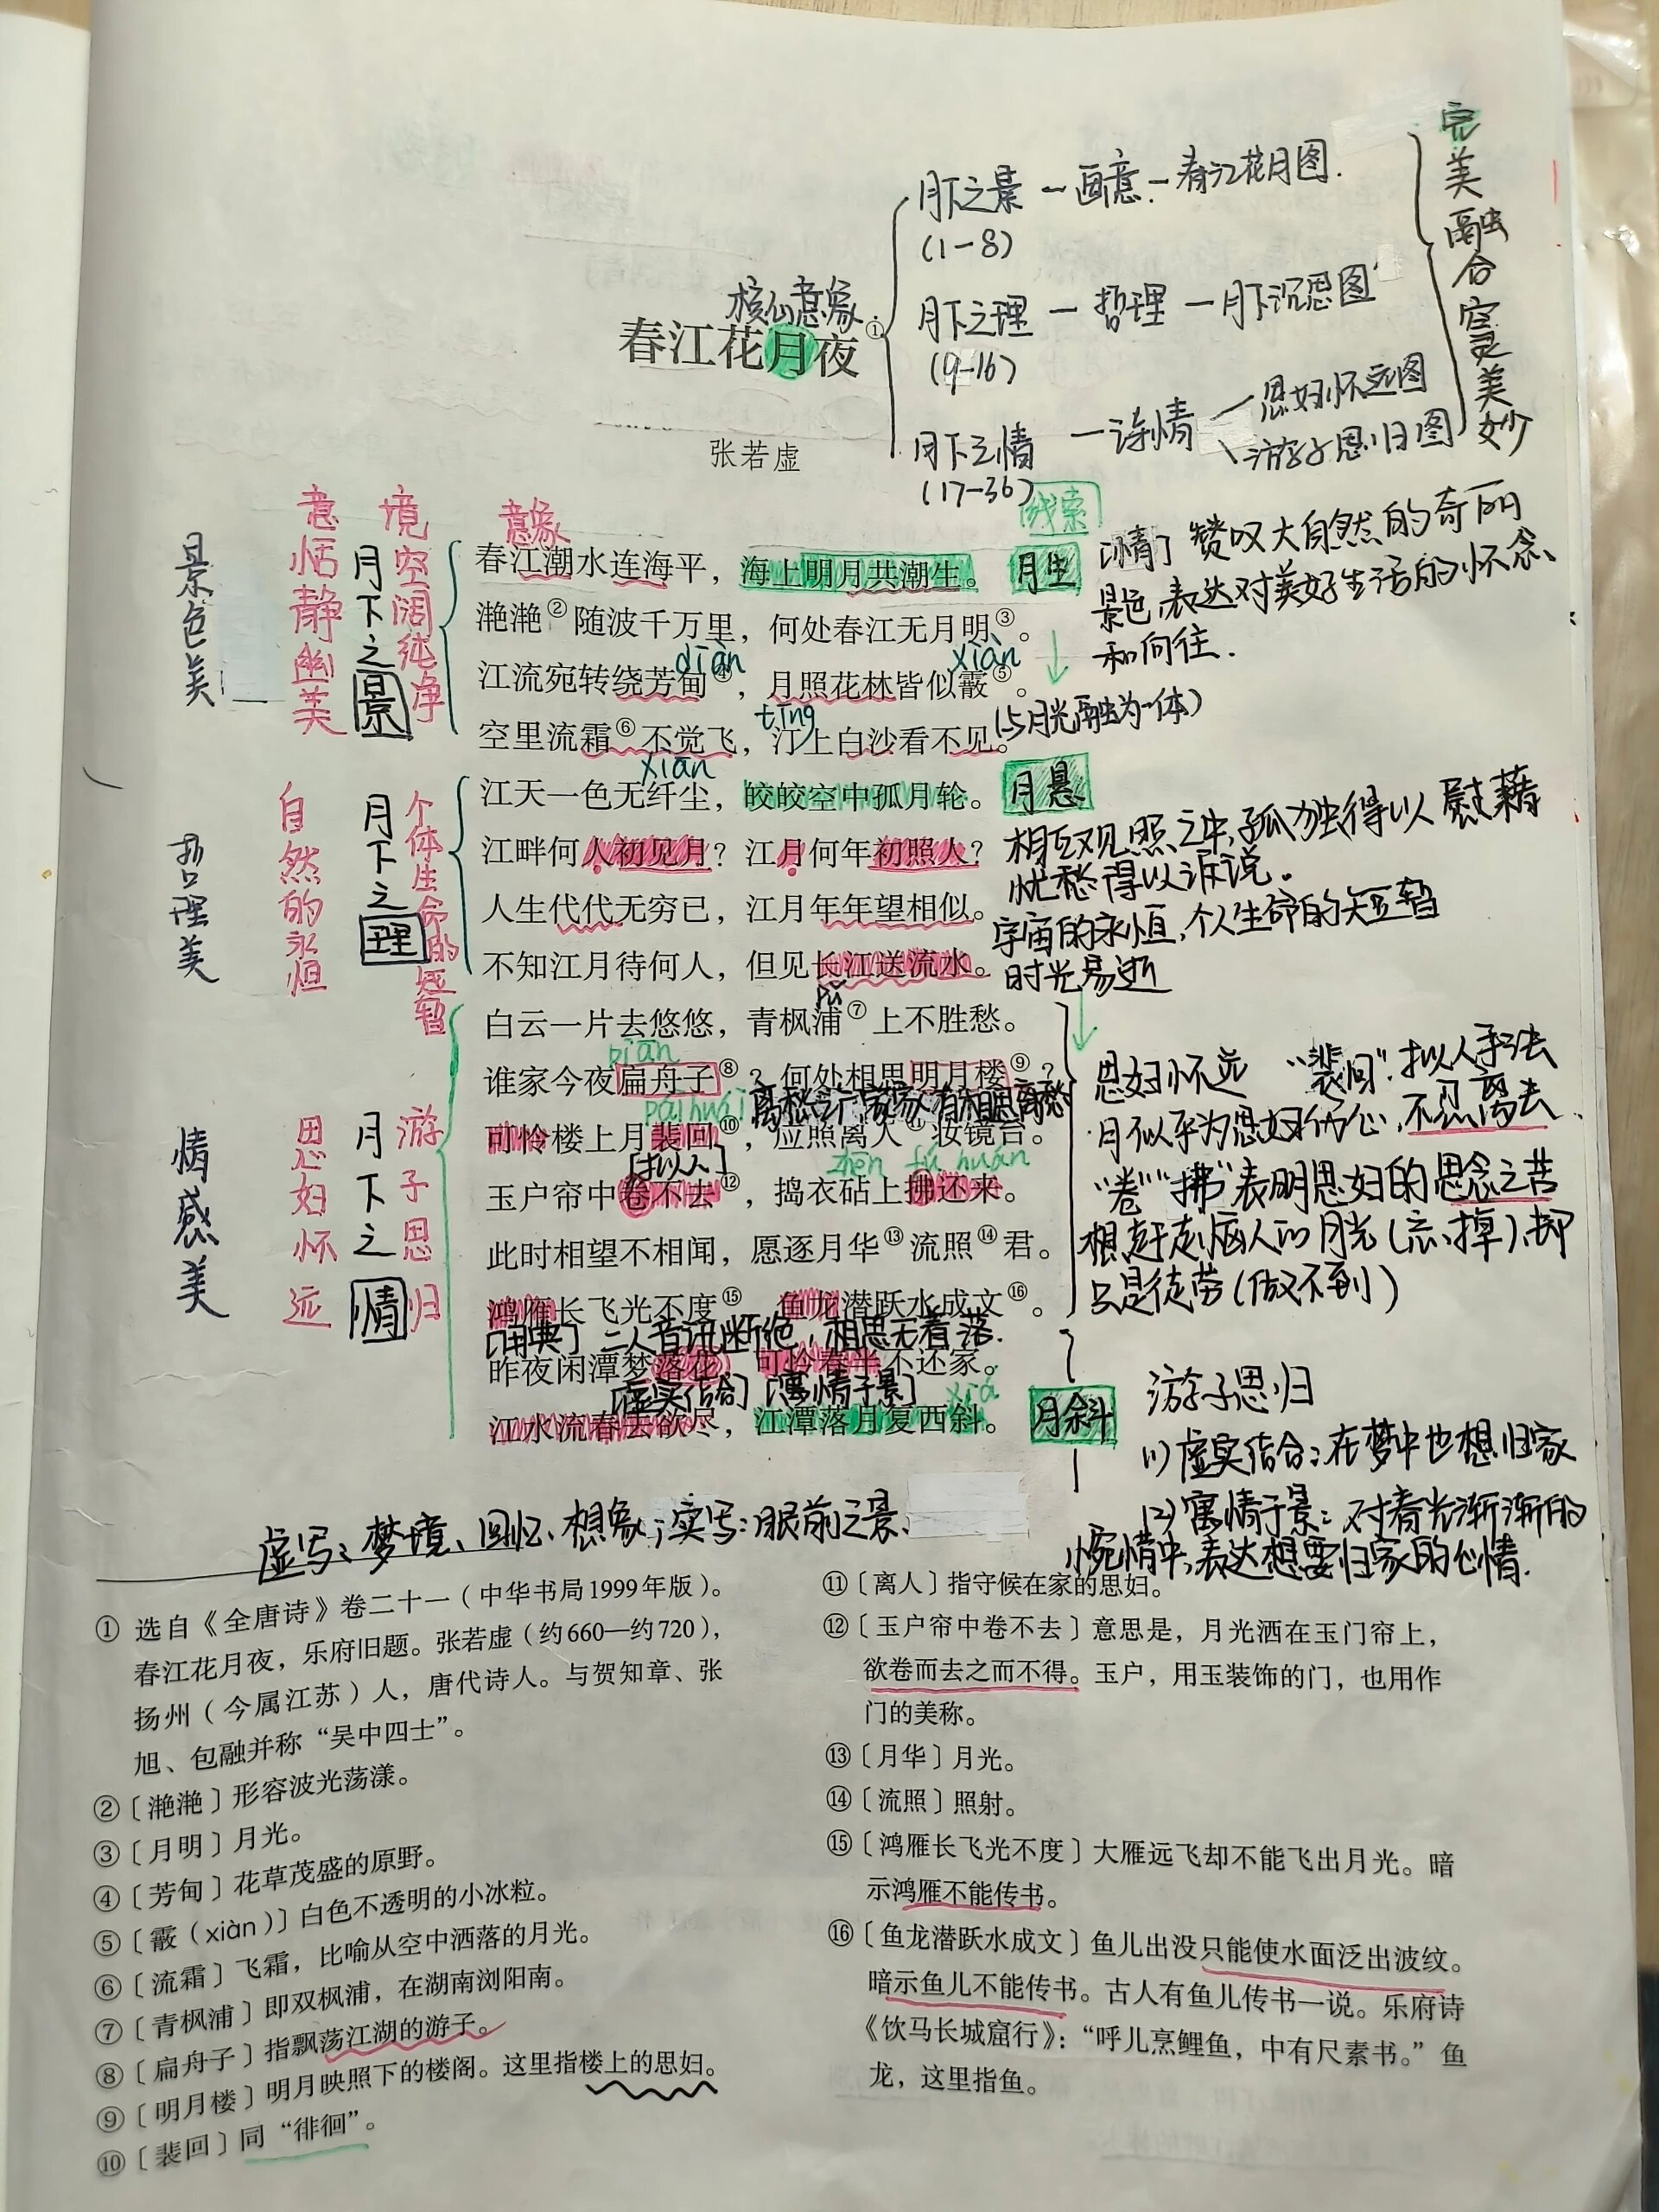 月下之景—画意—春江花月图.
(1-8)
月下之理—哲理—月下沉思图
(9-16)
月下之情—诗情
思妇怀远图
游子思归图
(17-36)
完美融合空灵美妙
核心意象
春江花月夜①
张若虚
线索
意境
意象
景色美
恬静幽美
月下之景
空阔纯净
春江潮水连海平，海上明月共潮生。
月生
滟滟②随波千万里，何处春江无月明③。
diàn
xiàn
江流宛转绕芳甸④，月照花林皆似霰⑤。
tīng
空里流霜⑥不觉飞，汀上白沙看不见。
(与月光融为一体)
[情] 赞叹大自然的奇丽
景色,表达对美好生活的怀念、
和向往.
哲理美
自然的永恒
月下之理
个体生命的短暂
xiān
江天一色无纤尘，皎皎空中孤月轮。
月悬
江畔何人初见月？江月何年初照人？
人生代代无穷已，江月年年望相似。
不知江月待何人，但见长江送流水。
相互观照之中,孤独得以慰藉
忧愁得以诉说.
宇宙的永恒,个人生命的短暂
时光易逝
情感美
思妇怀远
月下之情
游子思归
pǔ
白云一片去悠悠，青枫浦⑦上不胜愁。
piān
谁家今夜扁舟子⑧？何处相思明月楼⑨？
pái huái
离愁之广,家家有相思离愁
可怜楼上月裴回⑩，应照离人⑪妆镜台。
[拟人]
zhēn fú huán
玉户帘中卷不去⑫，捣衣砧上拂还来。
此时相望不相闻，愿逐月华⑬流照⑭君。
鸿雁长飞光不度⑮，鱼龙潜跃水成文⑯。
[用典] 二人音讯断绝,相思无着落.
昨夜闲潭梦落花，可怜春半不还家。
[虚实结合] [寓情于景]
xiá
江水流春去欲尽，江潭落月复西斜。
月斜
思妇怀远 “裴回”:拟人手法
月似乎为思妇伤心,不忍离去.
“卷”“拂”表明思妇的思念之苦
想赶走恼人的月光(忘掉),却
只是徒劳(做不到)
游子思归
(1)虚实结合:在梦中也想归家
(2)寓情于景:对春光渐渐的
惋惜中,表达想要归家的心情.
虚写:梦境、回忆、想象;实写:眼前之景、
① 选自《全唐诗》卷二十一（中华书局1999年版）。
春江花月夜，乐府旧题。张若虚（约660—约720），
扬州（今属江苏）人，唐代诗人。与贺知章、张
旭、包融并称“吴中四士”。
②〔滟滟〕形容波光荡漾。
③〔月明〕月光。
④〔芳甸〕花草茂盛的原野。
⑤〔霰（xiàn）〕白色不透明的小冰粒。
⑥〔流霜〕飞霜，比喻从空中洒落的月光。
⑦〔青枫浦〕即双枫浦，在湖南浏阳南。
⑧〔扁舟子〕指飘荡江湖的游子。
⑨〔明月楼〕明月映照下的楼阁。这里指楼上的思妇。
⑩〔裴回〕同“徘徊”。
⑪〔离人〕指守候在家的思妇。
⑫〔玉户帘中卷不去〕意思是，月光洒在玉门帘上，
欲卷而去之而不得。玉户，用玉装饰的门，也用作
门的美称。
⑬〔月华〕月光。
⑭〔流照〕照射。
⑮〔鸿雁长飞光不度〕大雁远飞却不能飞出月光。暗
示鸿雁不能传书。
⑯〔鱼龙潜跃水成文〕鱼儿出没只能使水面泛出波纹。
暗示鱼儿不能传书。古人有鱼儿传书一说。乐府诗
《饮马长城窟行》：“呼儿烹鲤鱼，中有尺素书。”鱼
龙，这里指鱼。